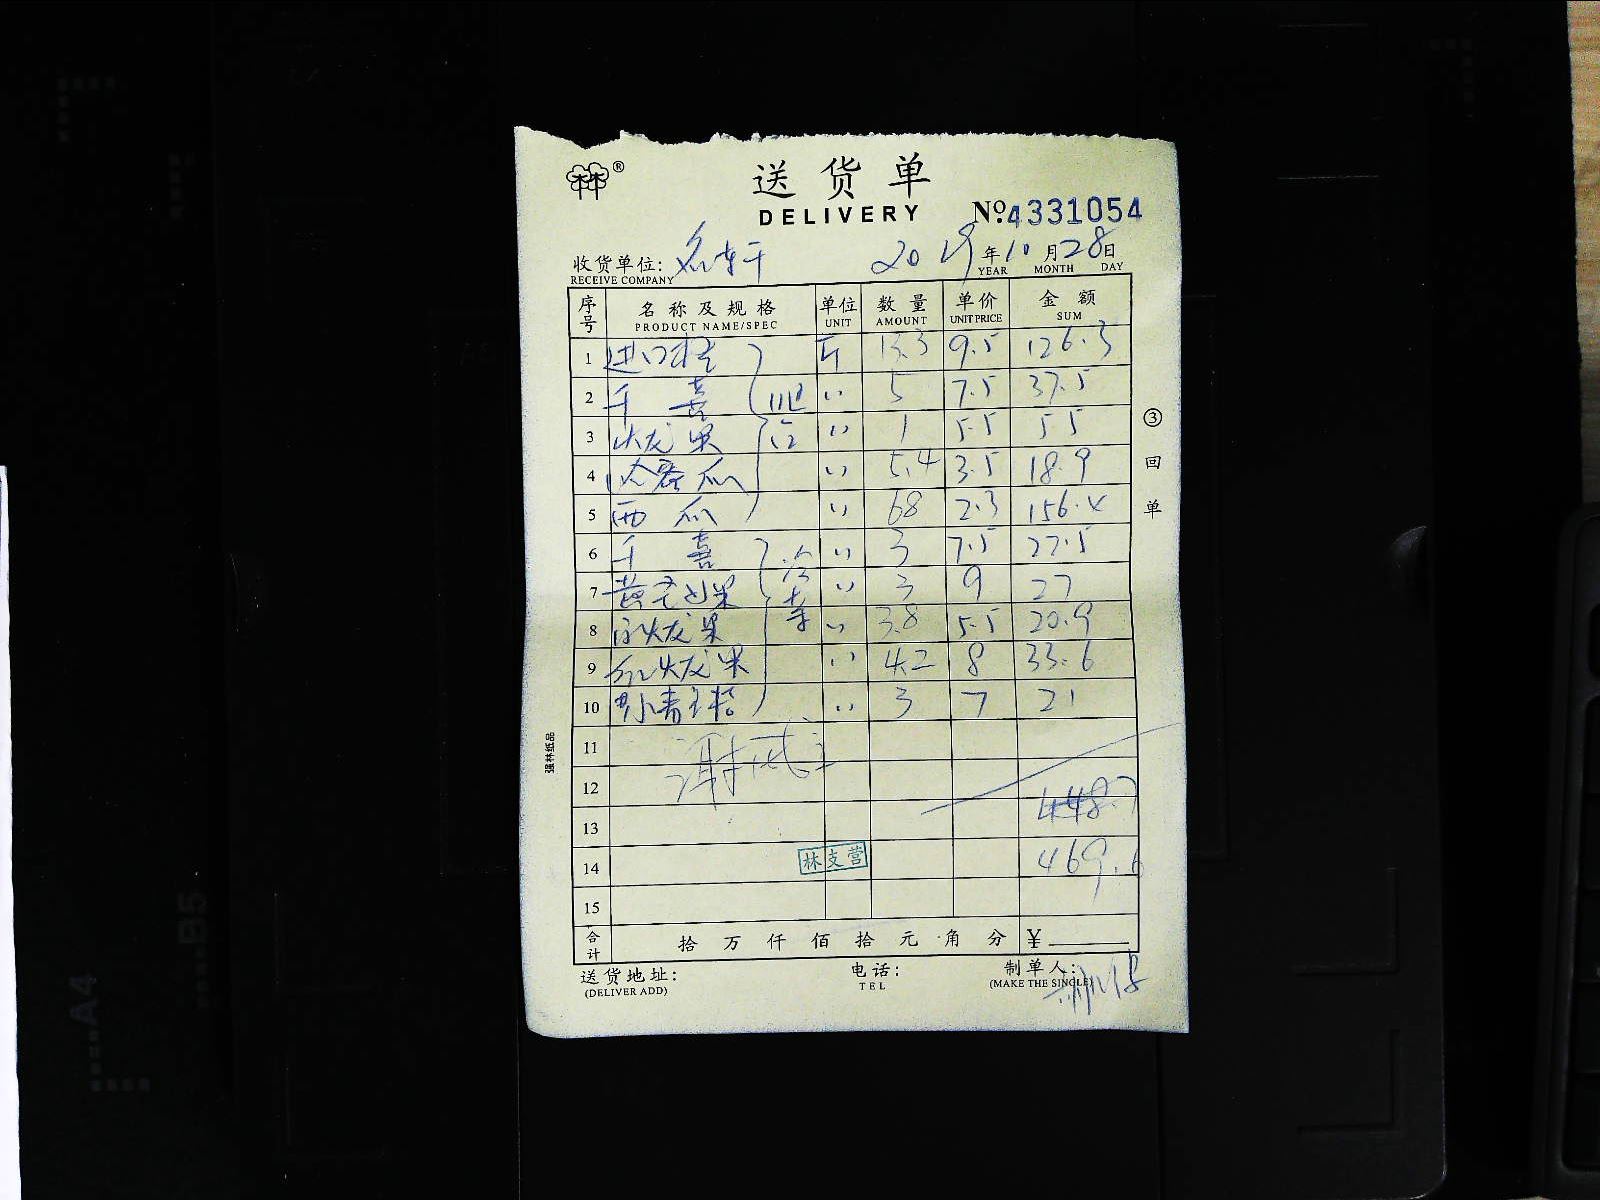 林林®
送货单
DELIVERY No.4331054
收货单位: 名轩 2019年10月28日
RECEIVE COMPANY YEAR MONTH DAY
序号 名称及规格 单位 数量 单价 金额
PRODUCT NAME/SPEC UNIT AMOUNT UNIT PRICE SUM
1 进口橙 斤 13.3 9.5 126.3
2 千喜 " 5 7.5 37.5
3 火龙果 " 1 5.5 5.5
4 哈密瓜 " 5.4 3.5 18.9
5 西瓜 " 68 2.3 156.4
6 千喜 " 3 7.5 22.5
7 黄奇异果 " 3 9 27
8 白火龙果 " 3.8 5.5 20.9
9 红火龙果 " 4.2 8 33.6
10 小青桔 " 3 7 21
11
12 448.7
13
14 林支营 469.6
15
合计 拾 万 仟 佰 拾 元 角 分 ¥
送货地址: 电话: 制单人:
(DELIVER ADD) TEL (MAKE THE SINGLE)
③回单
强林纸品
A4
B5